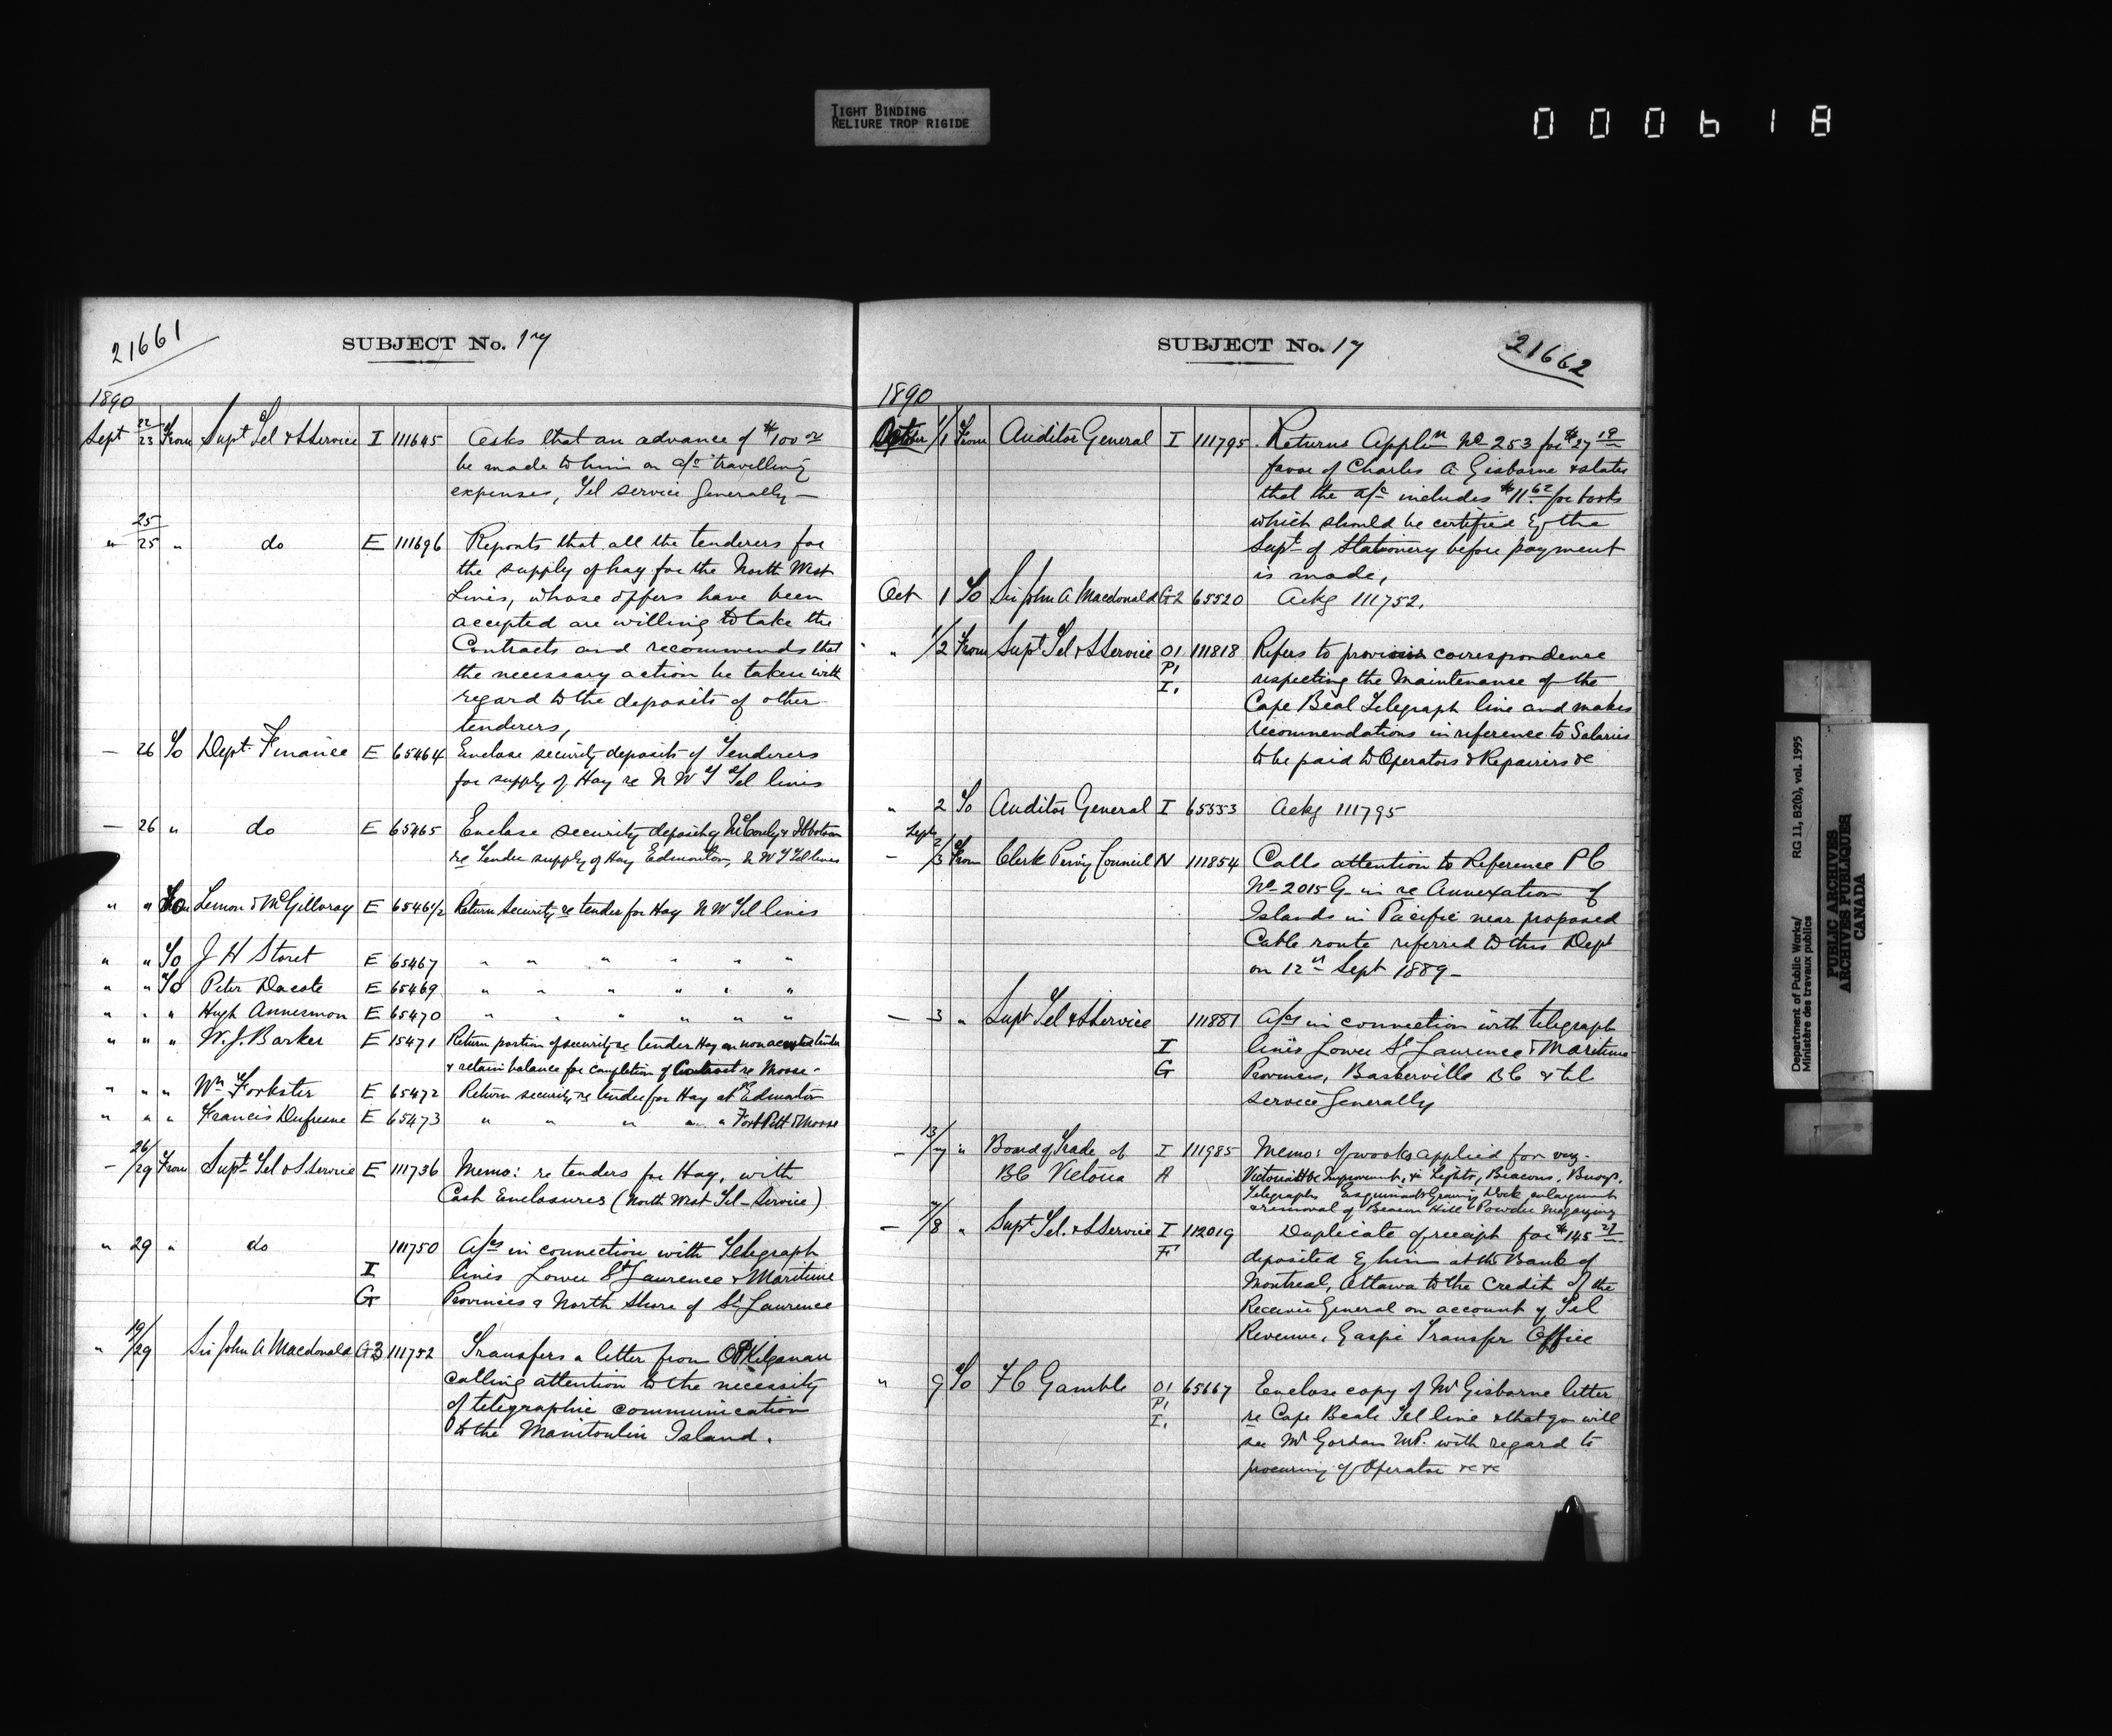 TIGHT BINDING
RELIURE TROP RIGIDE
000618
21661
SUBJECT No. 17
1890
Sept 22/23 From Supt Tel & S Service I 111645 Asks that an advance of $100 00
be made to him on a/c travelling
expenses, Tel service generally —
" 25/25 " do E 111696 Reports that all the tenderers for
the supply of hay for the North West
Lines, whose offers have been
accepted are willing to take the
Contracts and recommends that
the necessary action be taken with
regard to the deposits of other
tenderers,
— 26 To Dept Finance E 65464 Enclose security deposits of Tenderers
for supply of Hay re N W T Tel lines
— 26 " do E 65465 Enclose security deposit of
re Tender supply of Hay Edmonton, N W T Tel lines
" " To Lemon & McGillvray E 65461/2 Return Security re tender for Hay N W Tel lines
" " To J H Storet E 65467 " " " " " "
" " To Peter Dacote E 65469 " " " " " "
" " " Hugh Annesmon E 65470 " " " " " "
" " " W. J. Barker E 15471 Return portion of security re tender Hay on non accepted tender
& retain balance for completion of Contract re Moose -
" " " Wm Forkster E 65472 Return security re tender for Hay at Edmonton
" " " Francis Dufresne E 65473 " " " " " Fort Pitt & Moose
— 26/29 From Supt Tel & S Service E 111736 Memo: re tenders for Hay, with
Cash Enclosures (North West Tel - Service)
" 29 " do 111750 A/cs in connection with Telegraph
I lines Lower St Laurence & Maritime
G Provinces & North Shore of St Laurence
" 19/29 Sir John A Macdonald G3 111752 Transfers a letter from Kilganan
calling attention to the necessity
of telegraphic communication
to the Manitoulin Island.
SUBJECT No. 17
21662
1890
October 1/1 From Auditor General I 111795 Returns Applin No 253 for $27 19
favor of Charles A Gisborne & states
that the a/c includes $11.62 for books
which should be certified by the
Supt of Stationery before payment
is made,
Oct 1 To Sir John A Macdonald G2 65520 Ackg 111752.
" 1/2 From Supt Tel & S Service O1 111818 Refers to previous correspondence
P1 respecting the Maintenance of the
I. Cape Beal Telegraph line and makes
recommendations in reference to Salaries
to be paid to Operators & Repairers &c
" 2 To Auditor General I 65553 Ackg 111795
Sept
— 2/3 From Clerk Privy Council N 111854 Calls attention to Reference P C
No 2015 G in re Annexation of
Islands in Pacific near proposed
Cable route referred to this Dept
on 12th Sept 1889 —
— 3 " Supt Tel & S Service 111881 A/cs in connection with telegraph
I lines Lower St Laurence & Maritime
G Provinces, Baskerville B C & tel
service generally
— 13/7 " Board of Trade of I 111985 Memo: of works applied for viz.
BC Victoria A Victoria Hbr Improvement, Lights, Beacons, Buoys,
Telegraphs Esquimalt Graving Dock enlargement
& removal of Beacon Hill Powder Magazine
— 7/8 " Supt Tel. & S Service I 112019 Duplicate of receipt for $145 27
F deposited by him at the Bank of
Montreal, Ottawa to the Credit of the
Receiver General on account of Tel
Revenue, Gaspé Transfer Office
" 9 To F C Gamble O1 65667 Enclose copy of Mr Gisborne letter
P1 re Cape Beale Tel line & that you will
I. see Mr Gordon M.P. with regard to
procuring of Operator &c &c
Department of Public Works/
Ministère des travaux publics
RG 11, B2(b), vol. 1995
PUBLIC ARCHIVES
ARCHIVES PUBLIQUES
CANADA